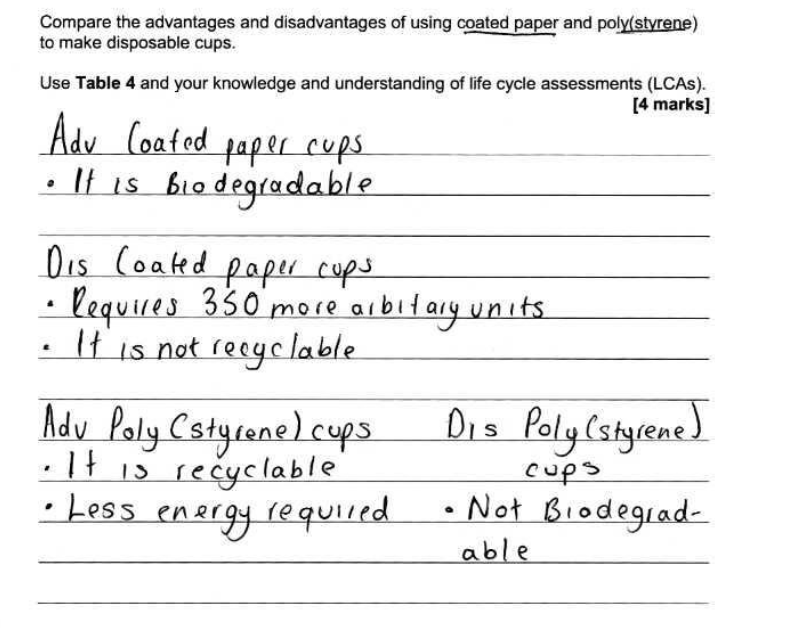 Compare the advantages and disadvantages of using coated paper and poly(styrene)
to make disposable cups.
Use Table 4 and your knowledge and understanding of life cycle assessments (LCAs).
[4 marks]
Adv Coated paper cups
• It is Biodegradable
Dis Coated paper cups
• Requires 350 more arbitary units
• It is not recyclable
Adv Poly (styrene) cups
• It is recyclable
• Less energy required
Dis Poly (styrene)
cups
• Not Biodegrad-
able